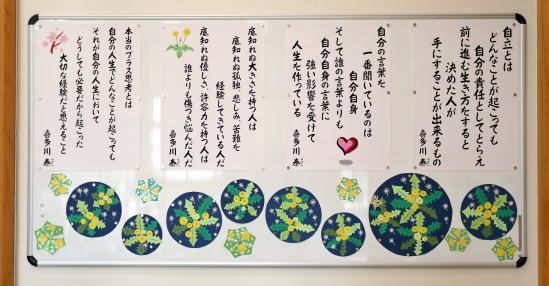 自立とは
どんなことが起こっても
自分の責任としてとらえ
前に進む生き方をすると
決めた人が
手にすることが出来るもの
喜多川 泰
自分の言葉を
一番聞いているのは
自分自身
そして誰の言葉よりも
自分自身の言葉に
強い影響を受けて
人生を作っている
喜多川 泰
底知れぬ大きさを持つ人は
底知れぬ孤独、悲しみ、苦難を
経験してきている人だ
底知れぬ優しさ、許容力を持つ人は
誰よりも傷つき悩んだ人だ
喜多川 泰
本当のプラス思考とは
自分の人生でどんなことが起こっても
それが自分の人生において
どうしても必要だから起こった
大切な経験だと思えること
喜多川 泰